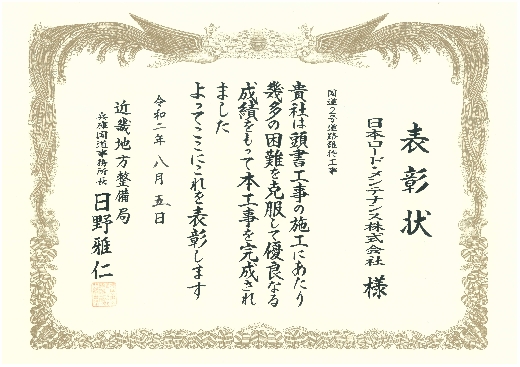 表彰状
日本ロード・メンテナンス株式会社 様
国道25号道路維持工事
貴社は頭書工事の施工にあたり
幾多の困難を克服して優良なる
成績をもって本工事を完成され
ました
よってここにこれを表彰します
令和二年八月五日
近畿地方整備局
兵庫国道事務所長 日野雅仁